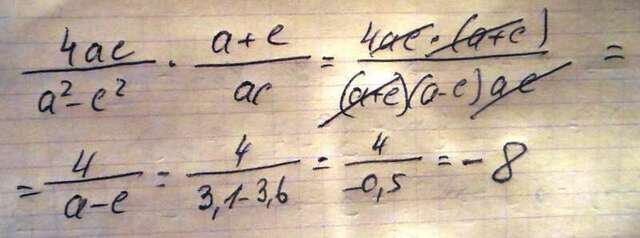 4ac/(a²-c²) · (a+c)/(ac) = (4ac·(a+c))/((a+c)(a-c)ac) =
= 4/(a-c) = 4/(3,1-3,6) = 4/(-0,5) = -8